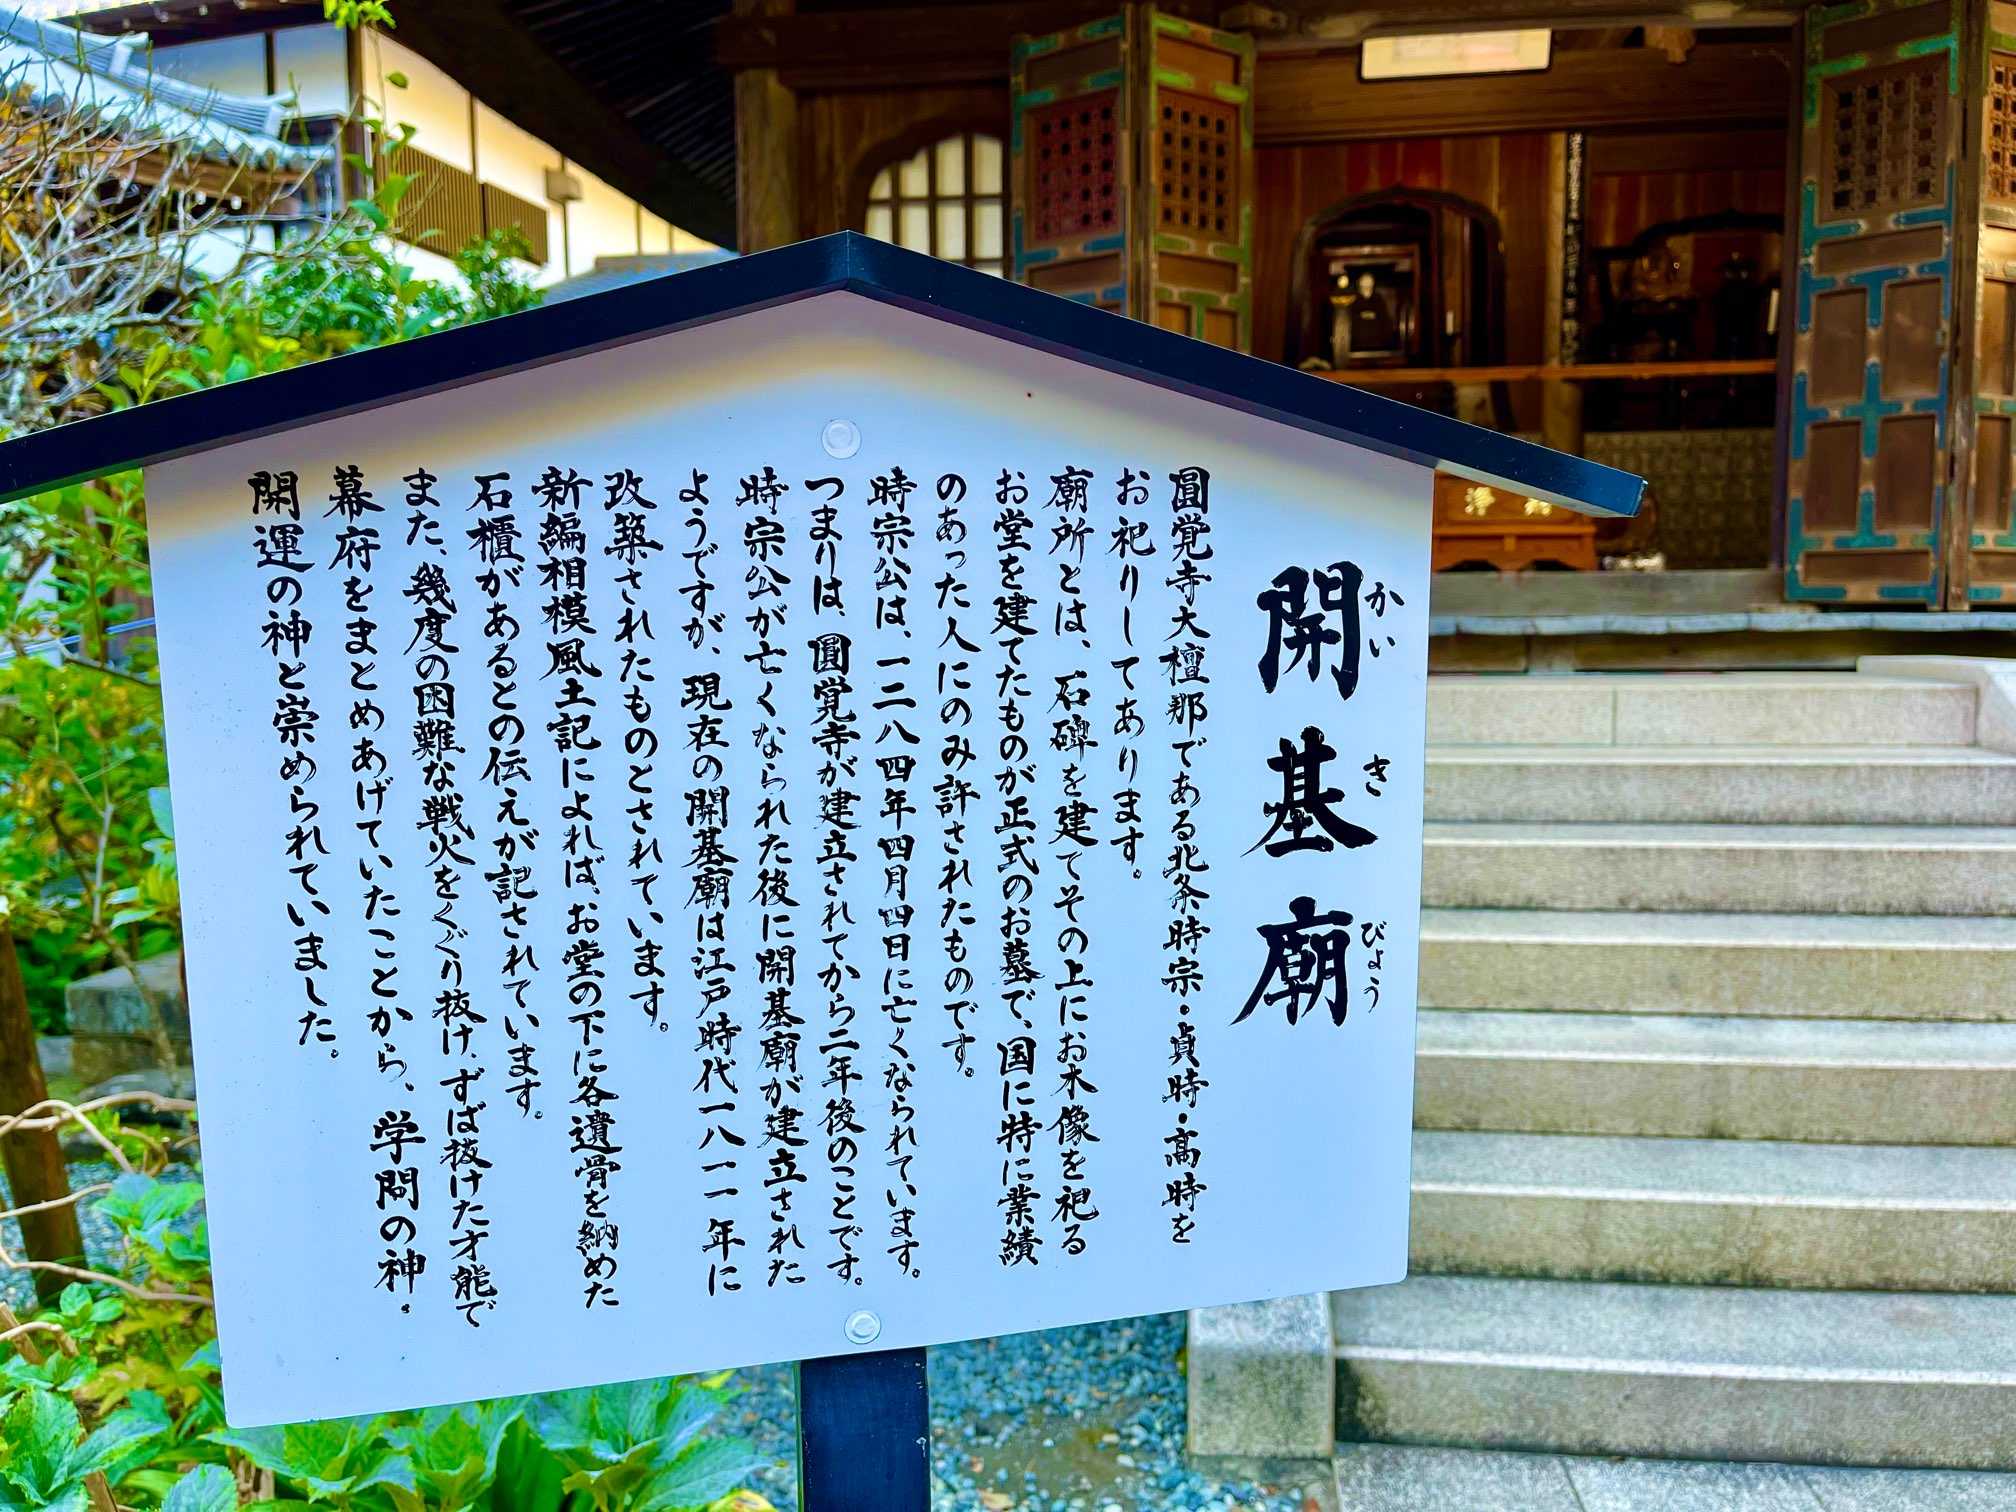 開基廟
かいきびょう
圓覚寺大檀那である北条時宗・貞時・高時を
お祀りしてあります。
廟所とは、石碑を建てその上にお木像を祀る
お堂を建てたものが正式のお墓で、国に特に業績
のあった人にのみ許されたものです。
時宗公は、一二八四年四月四日に亡くなられています。
つまりは、圓覚寺が建立されてから二年後のことです。
時宗公が亡くなられた後に開基廟が建立された
ようですが、現在の開基廟は江戸時代一八一一年に
改築されたものとされています。
新編相模風土記によれば、お堂の下に各遺骨を納めた
石櫃があるとの伝えが記されています。
また、幾度の困難な戦火をくぐり抜け、ずば抜けた才能で
幕府をまとめあげていたことから、学問の神・
開運の神と崇められていました。
浄財